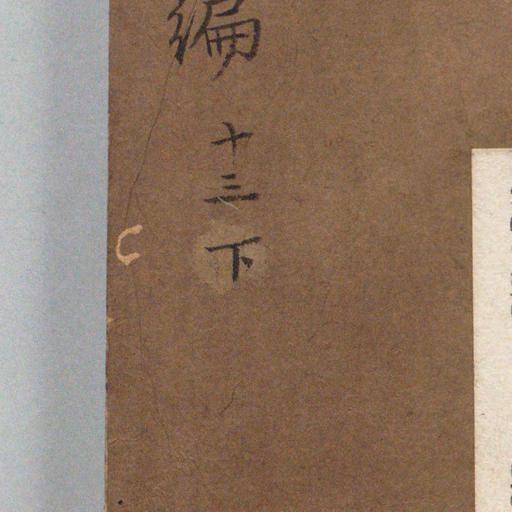 編十三下